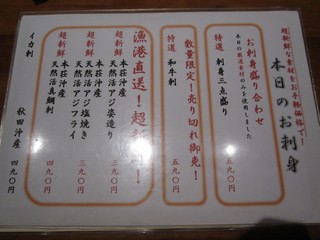 超新鮮な素材をお手軽価格で!
本日のお刺身
お刺身盛り合わせ
本日の厳選素材のみを使用しました
特選 刺身三点盛り 五九〇円
数量限定!売り切れ御免!
特選 和牛刺 五九〇円
漁港直送!超新鮮!
超新鮮 本荘沖産 天然活アジ姿造り 三九〇円
超新鮮 本荘沖産 天然活アジ塩焼き 三九〇円
本荘沖産 天然活アジフライ 三九〇円
超新鮮 本荘沖産 天然活真鯛刺 四九〇円
イカ刺 秋田沖産 四九〇円